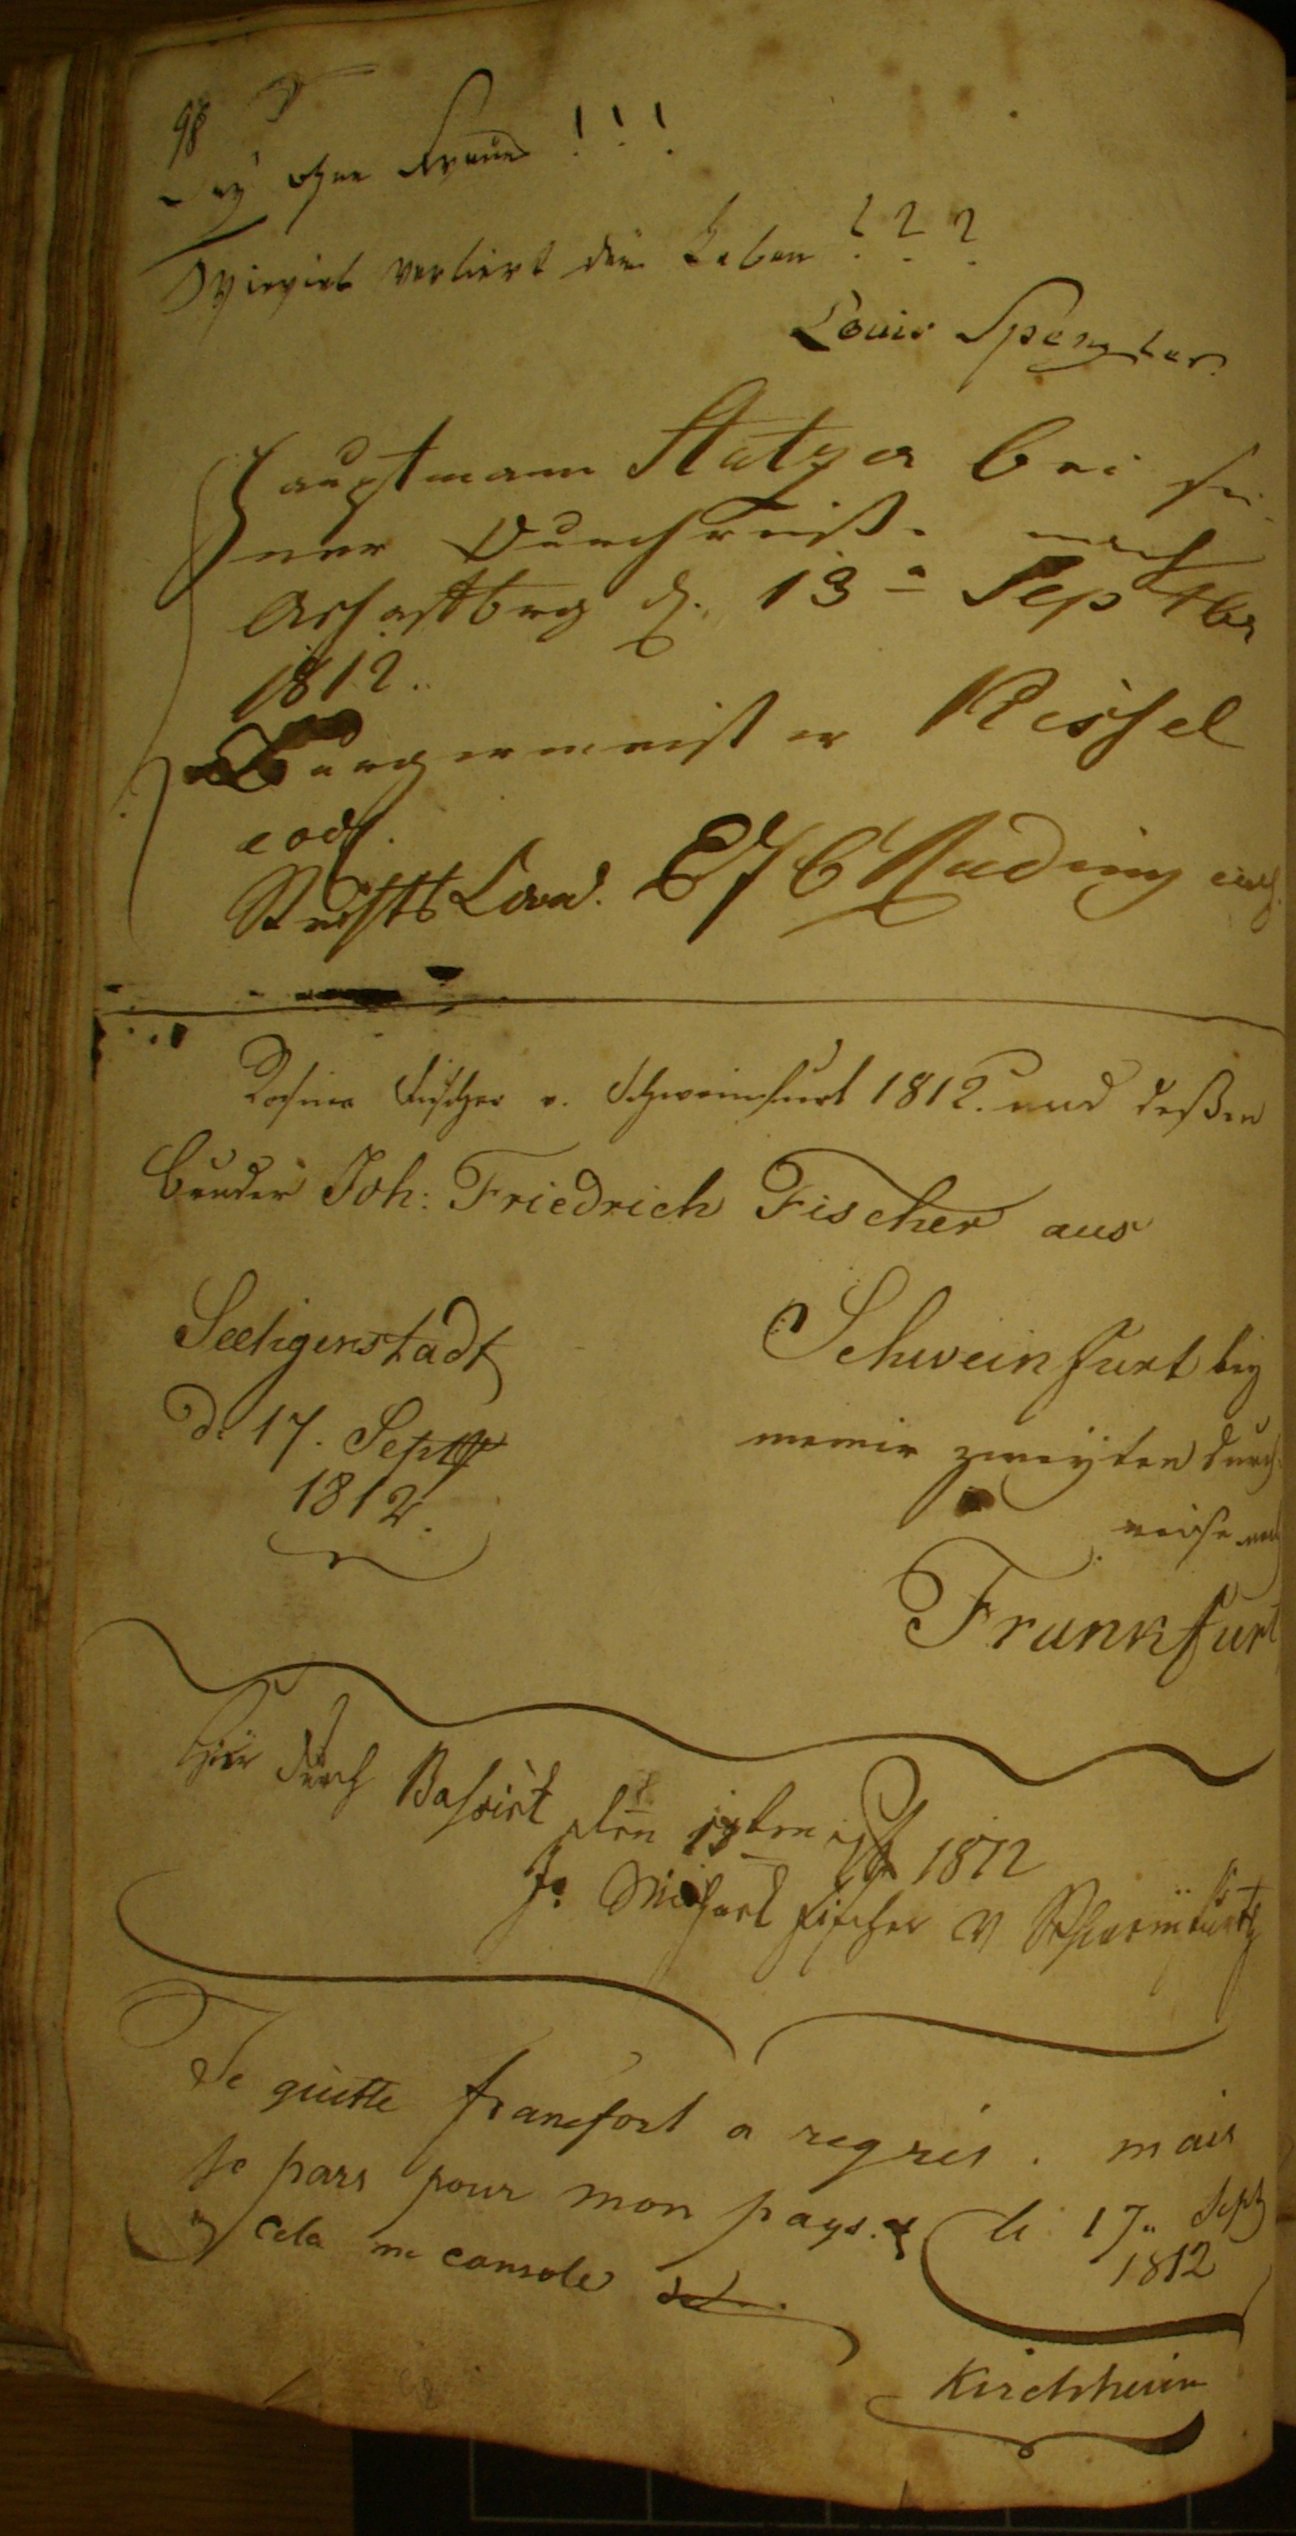 98
Sey ohne Freund !!!
Wieviel verliert dein Leben ???
Louis Spengler.
Hauptmann Statzer bei sei
ner Durchreiße nach
Aschaffbrg d. 13 Septbr
1812.
Burgermeister Kissel
eod.
Rading
Fischer v. Schweinfurt 1812. und deßen
bruder Joh: Friedrich Fischer aus
Seeligenstadt
d. 17. Sept
1812.
Schweinfurt bey
meiner zweyten durch
reise nach
Frankfurt
Hier durch Baßirt den 17ten 1812
Jo Michael Fischer v Schweinfurth
Je quitte francfort a regret. mais
Je pars pour mon pays. &
Cela me console
le 17 Sept
1812
Kirchheim